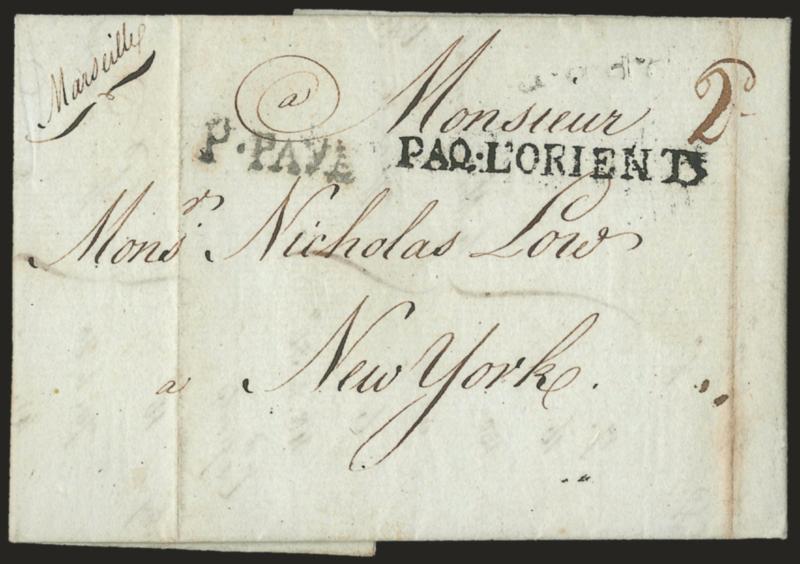 Marseille
a Monsieur
2
P.PAYÉ
PAQ.L'ORIENT
Monsr Nicholas Low
a New York.